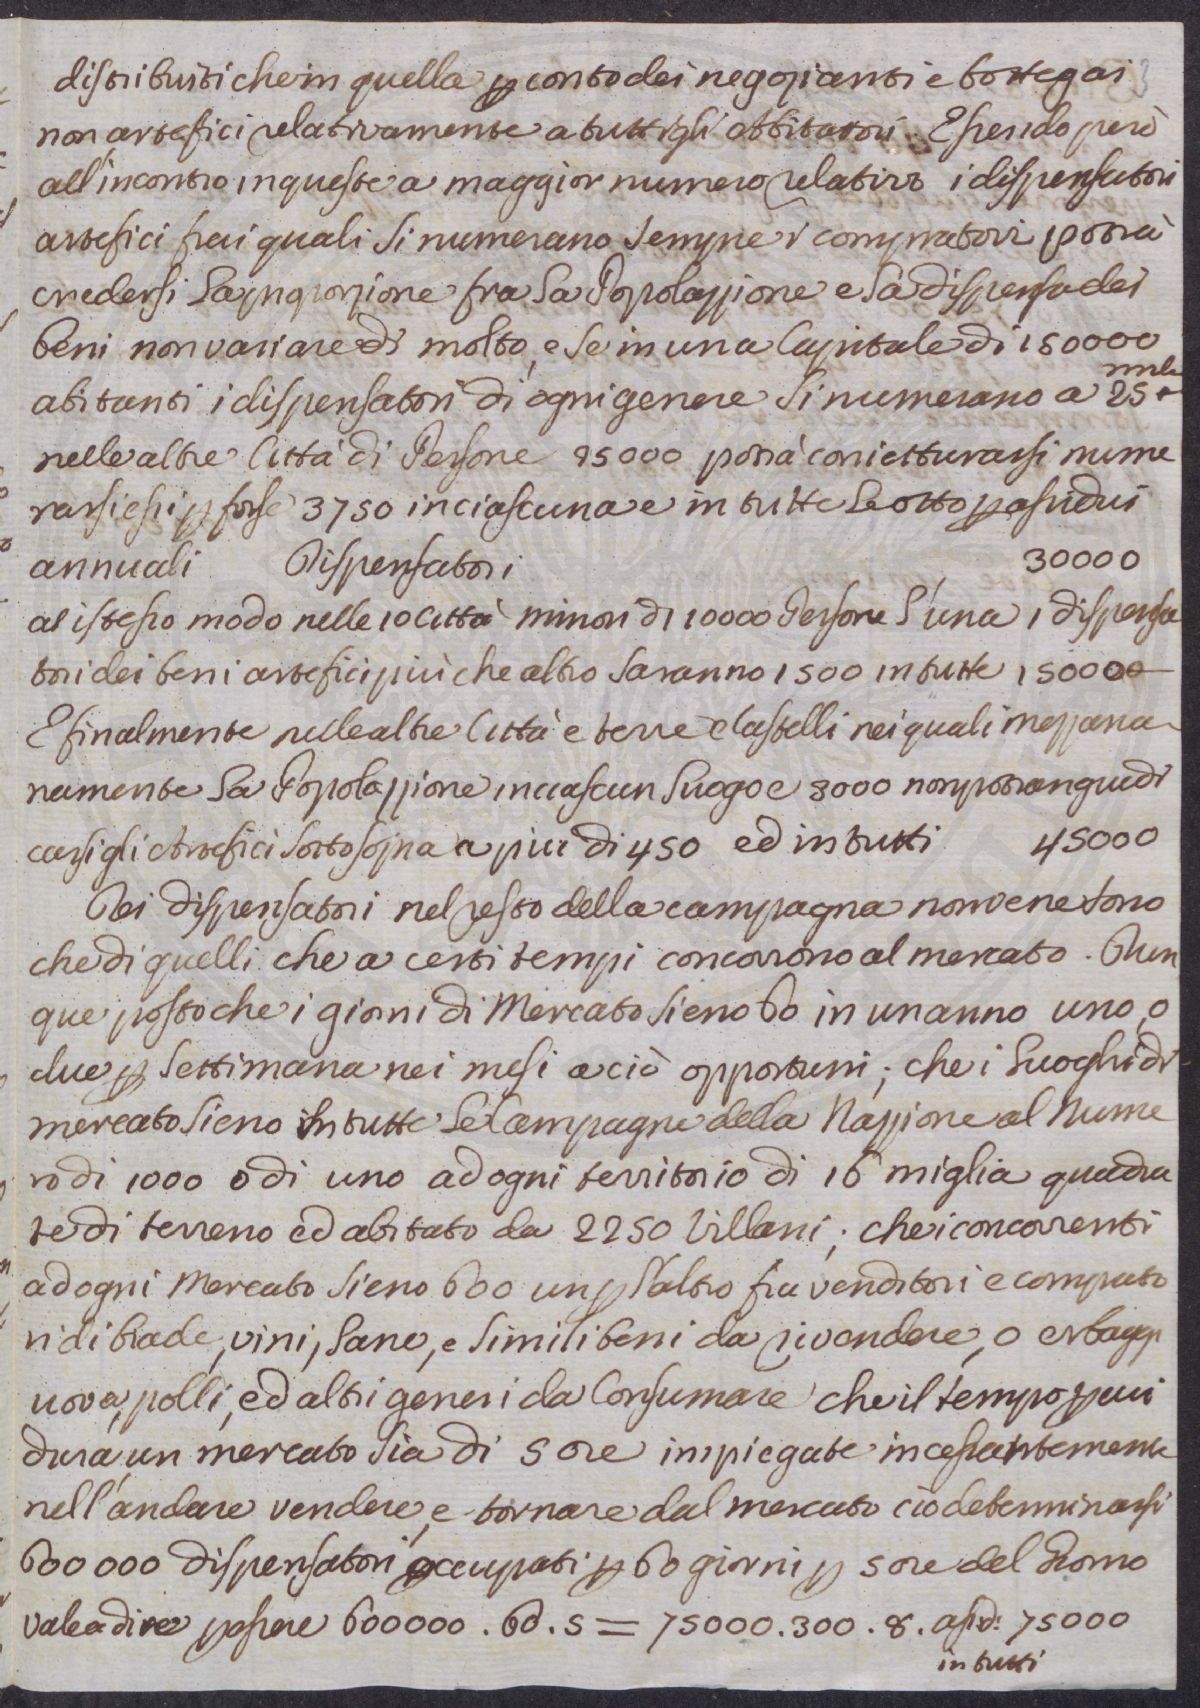 distribuiti che in quella p conto dei negozianti e bottegai
non artefici relativamente a tutti gli abitatori. Essendo però
all'incontro in queste a maggior numero relativo i dispensatori
artefici frai quali si numerano sempre i compratori potrà
credersi la proporzione fra la Popolazzione e la dispensa dei
beni non variare di molto, e se in una Capitale di 150000
abitanti i dispensatori di ogni genere si numerano a 25 mila
nelle altre Città di Persone 25000 potrà conietturarsi nume
rarsi essi p forse 3750 in ciascuna e in tutte le otto p assidui
annuali Dispensatori 30000
al istesso modo nelle 10 Città minori di 10000 Persone l'una i dispensa
tori dei beni artefici più che altro saranno 1500 in tutte 15000
E finalmente nelle altre Città e terre e Castelli nei quali mezzana
namente la Popolazzione in ciascun luogo e 3000 non potranno giudi
carsi gli Artefici sottosopra a più di 450 ed in tutti 45000
Dei dispensatori nel resto della campagna non vene sono
che di quelli che a certi tempi concorrono al mercato. Dun
que posto che i giorni di Mercato sieno 60 in un anno uno, o
due p settimana nei mesi a ciò opportuni; che i luoghi di
mercato sieno in tutte le Campagne della Nazzione al Nume
ro di 1000 o di uno ad ogni territorio di 16 miglia quadra
te di terreno ed abitato da 2250 Villani; che i concorrenti
ad ogni Mercato sieno 600 un p l'altro fra venditori e comprato
ri di biade, vini, lane, e simili beni da rivendere, o erbaggi
uova, polli, ed altri generi da Consumare che il tempo p cui
dura un mercato sia di 5 ore impiegate incessantemente
nell'andare vendere, e tornare dal mercato cio determinarsi
600000 dispensatori occupati p 60 giorni p 5 ore del Giorno
vale a dire essere 600000 . 60 . 5 = 75000 . 300 . 8 . assid: 75000
in tutti